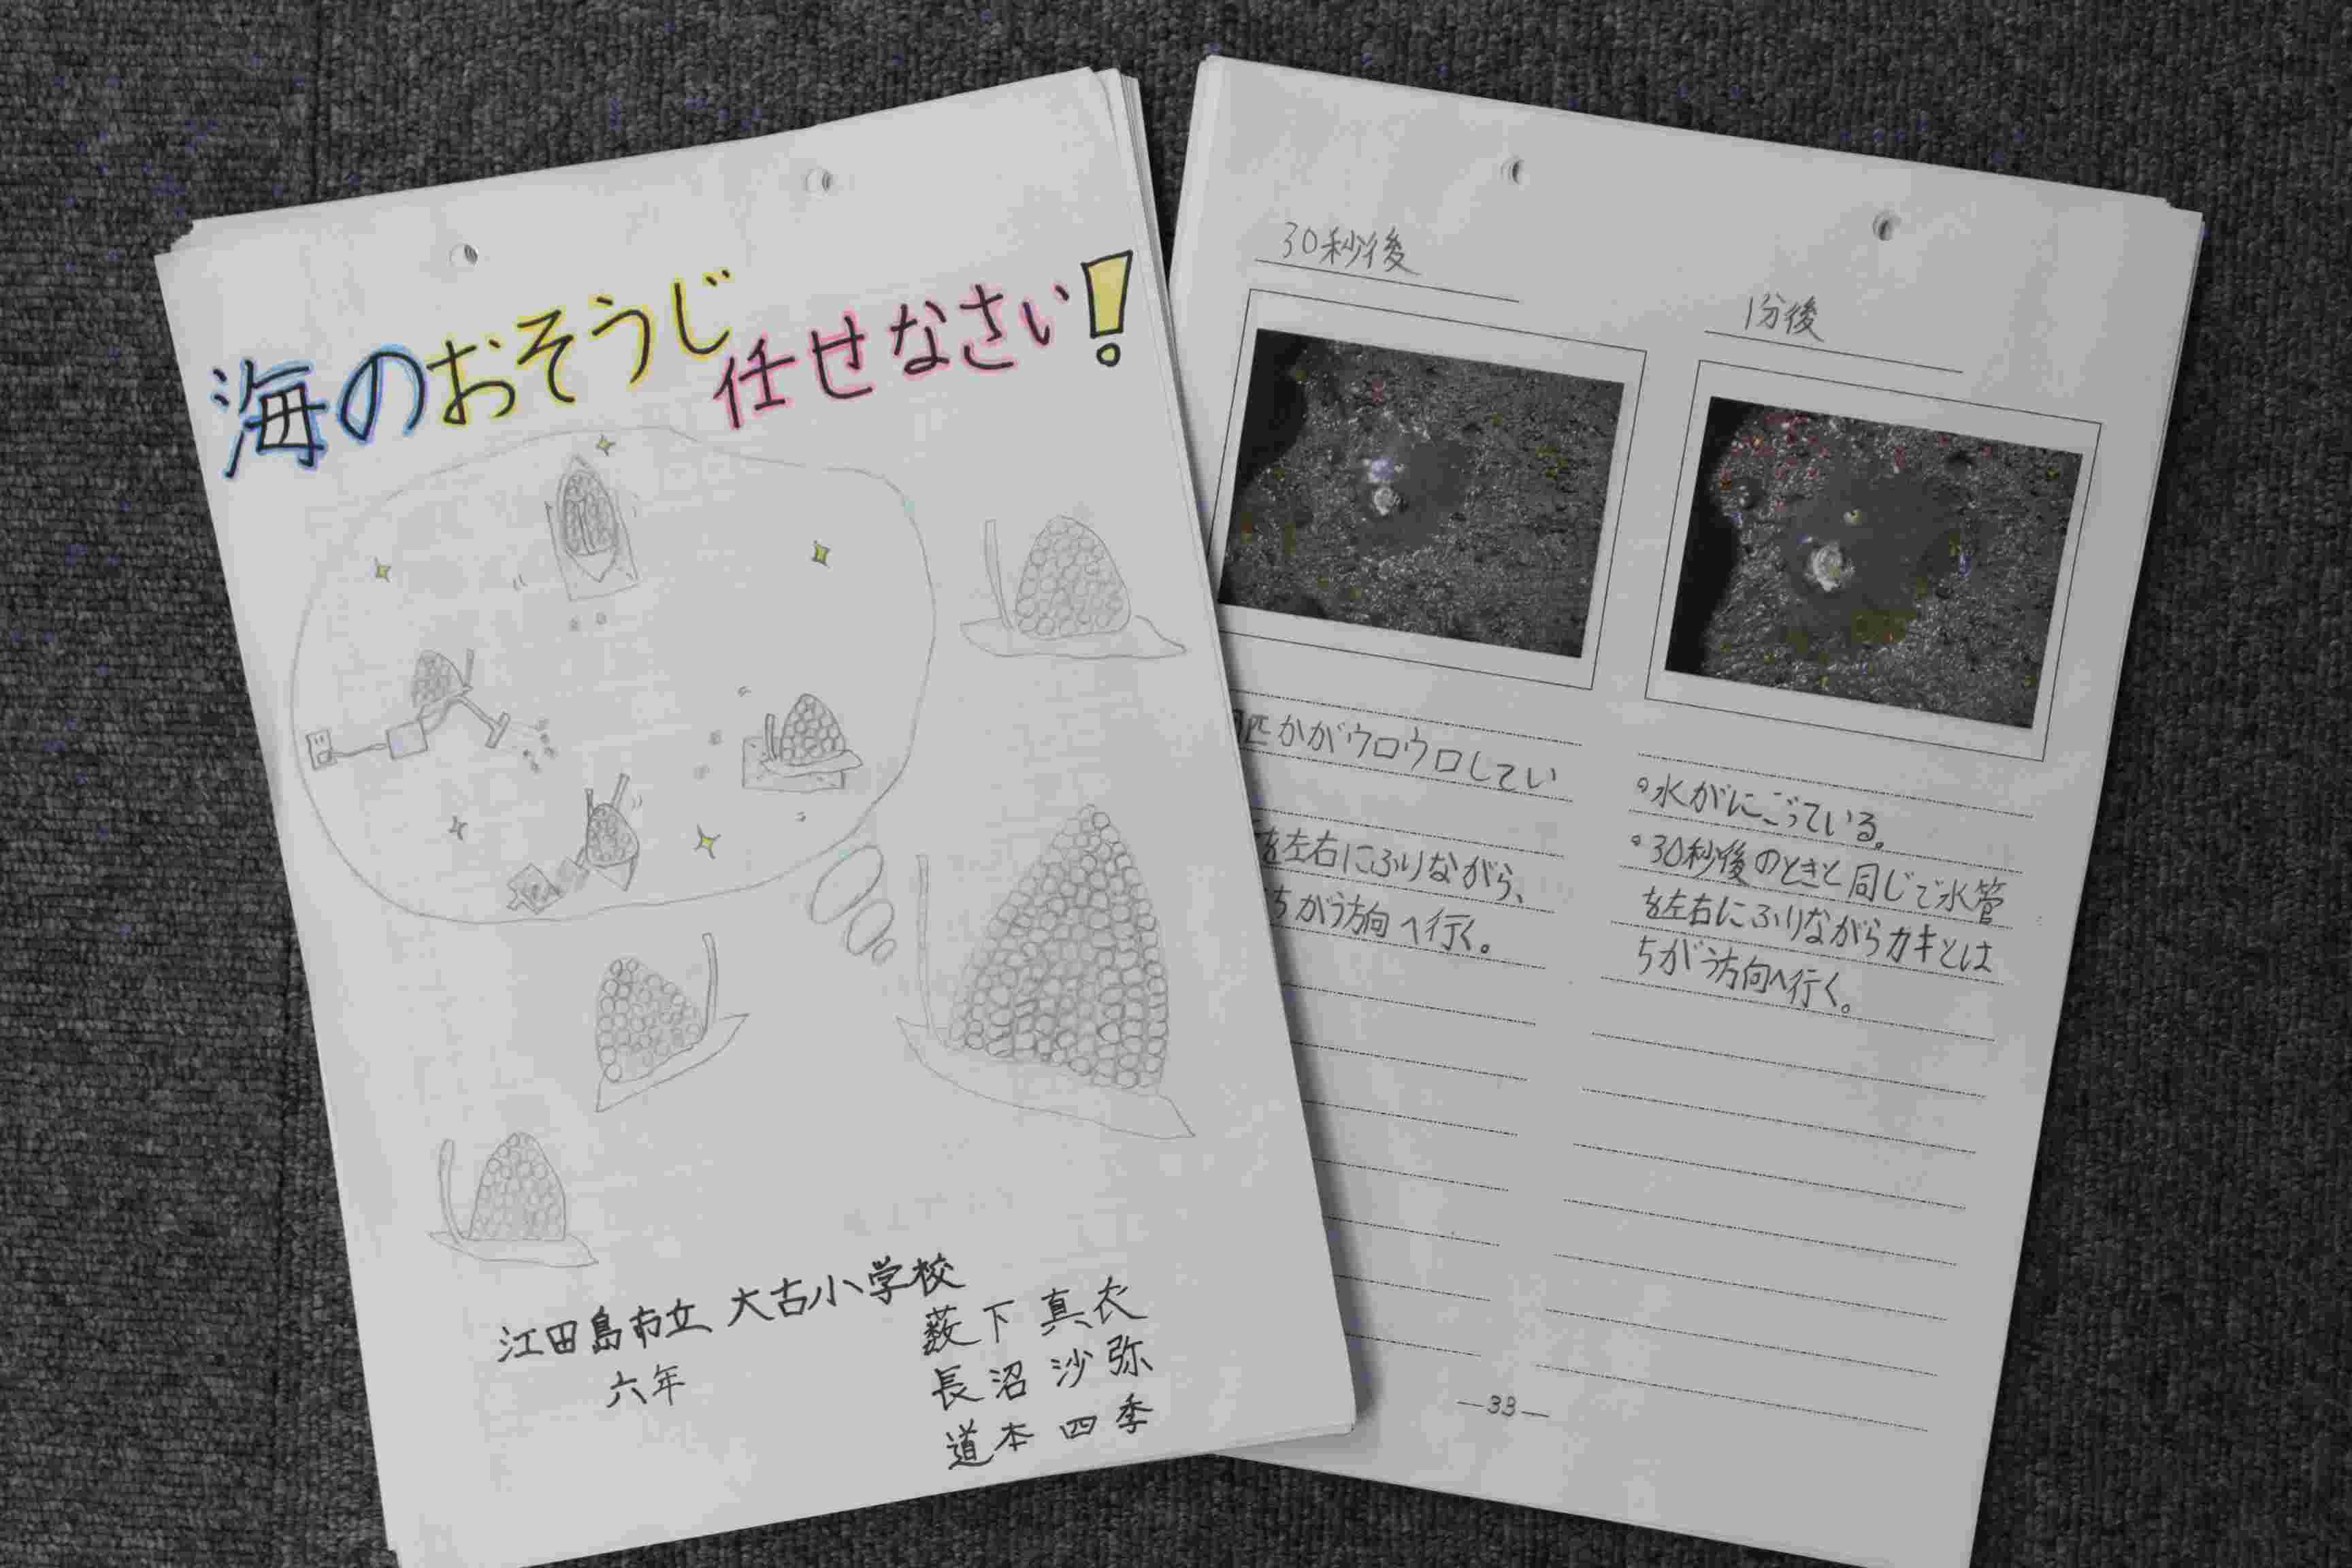 海のおそうじ
任せなさい!
江田島市立 大古小学校
六年
薮下 真衣
長沼 沙弥
道本 四季
30秒後
匹かがウロウロしてい
を左右にふりながら、
ちがう方向へ行く。
1分後
。水がにごっている。
。30秒後のときと同じで水管
を左右にふりながらカキとは
ちがう方向へ行く。
—33—